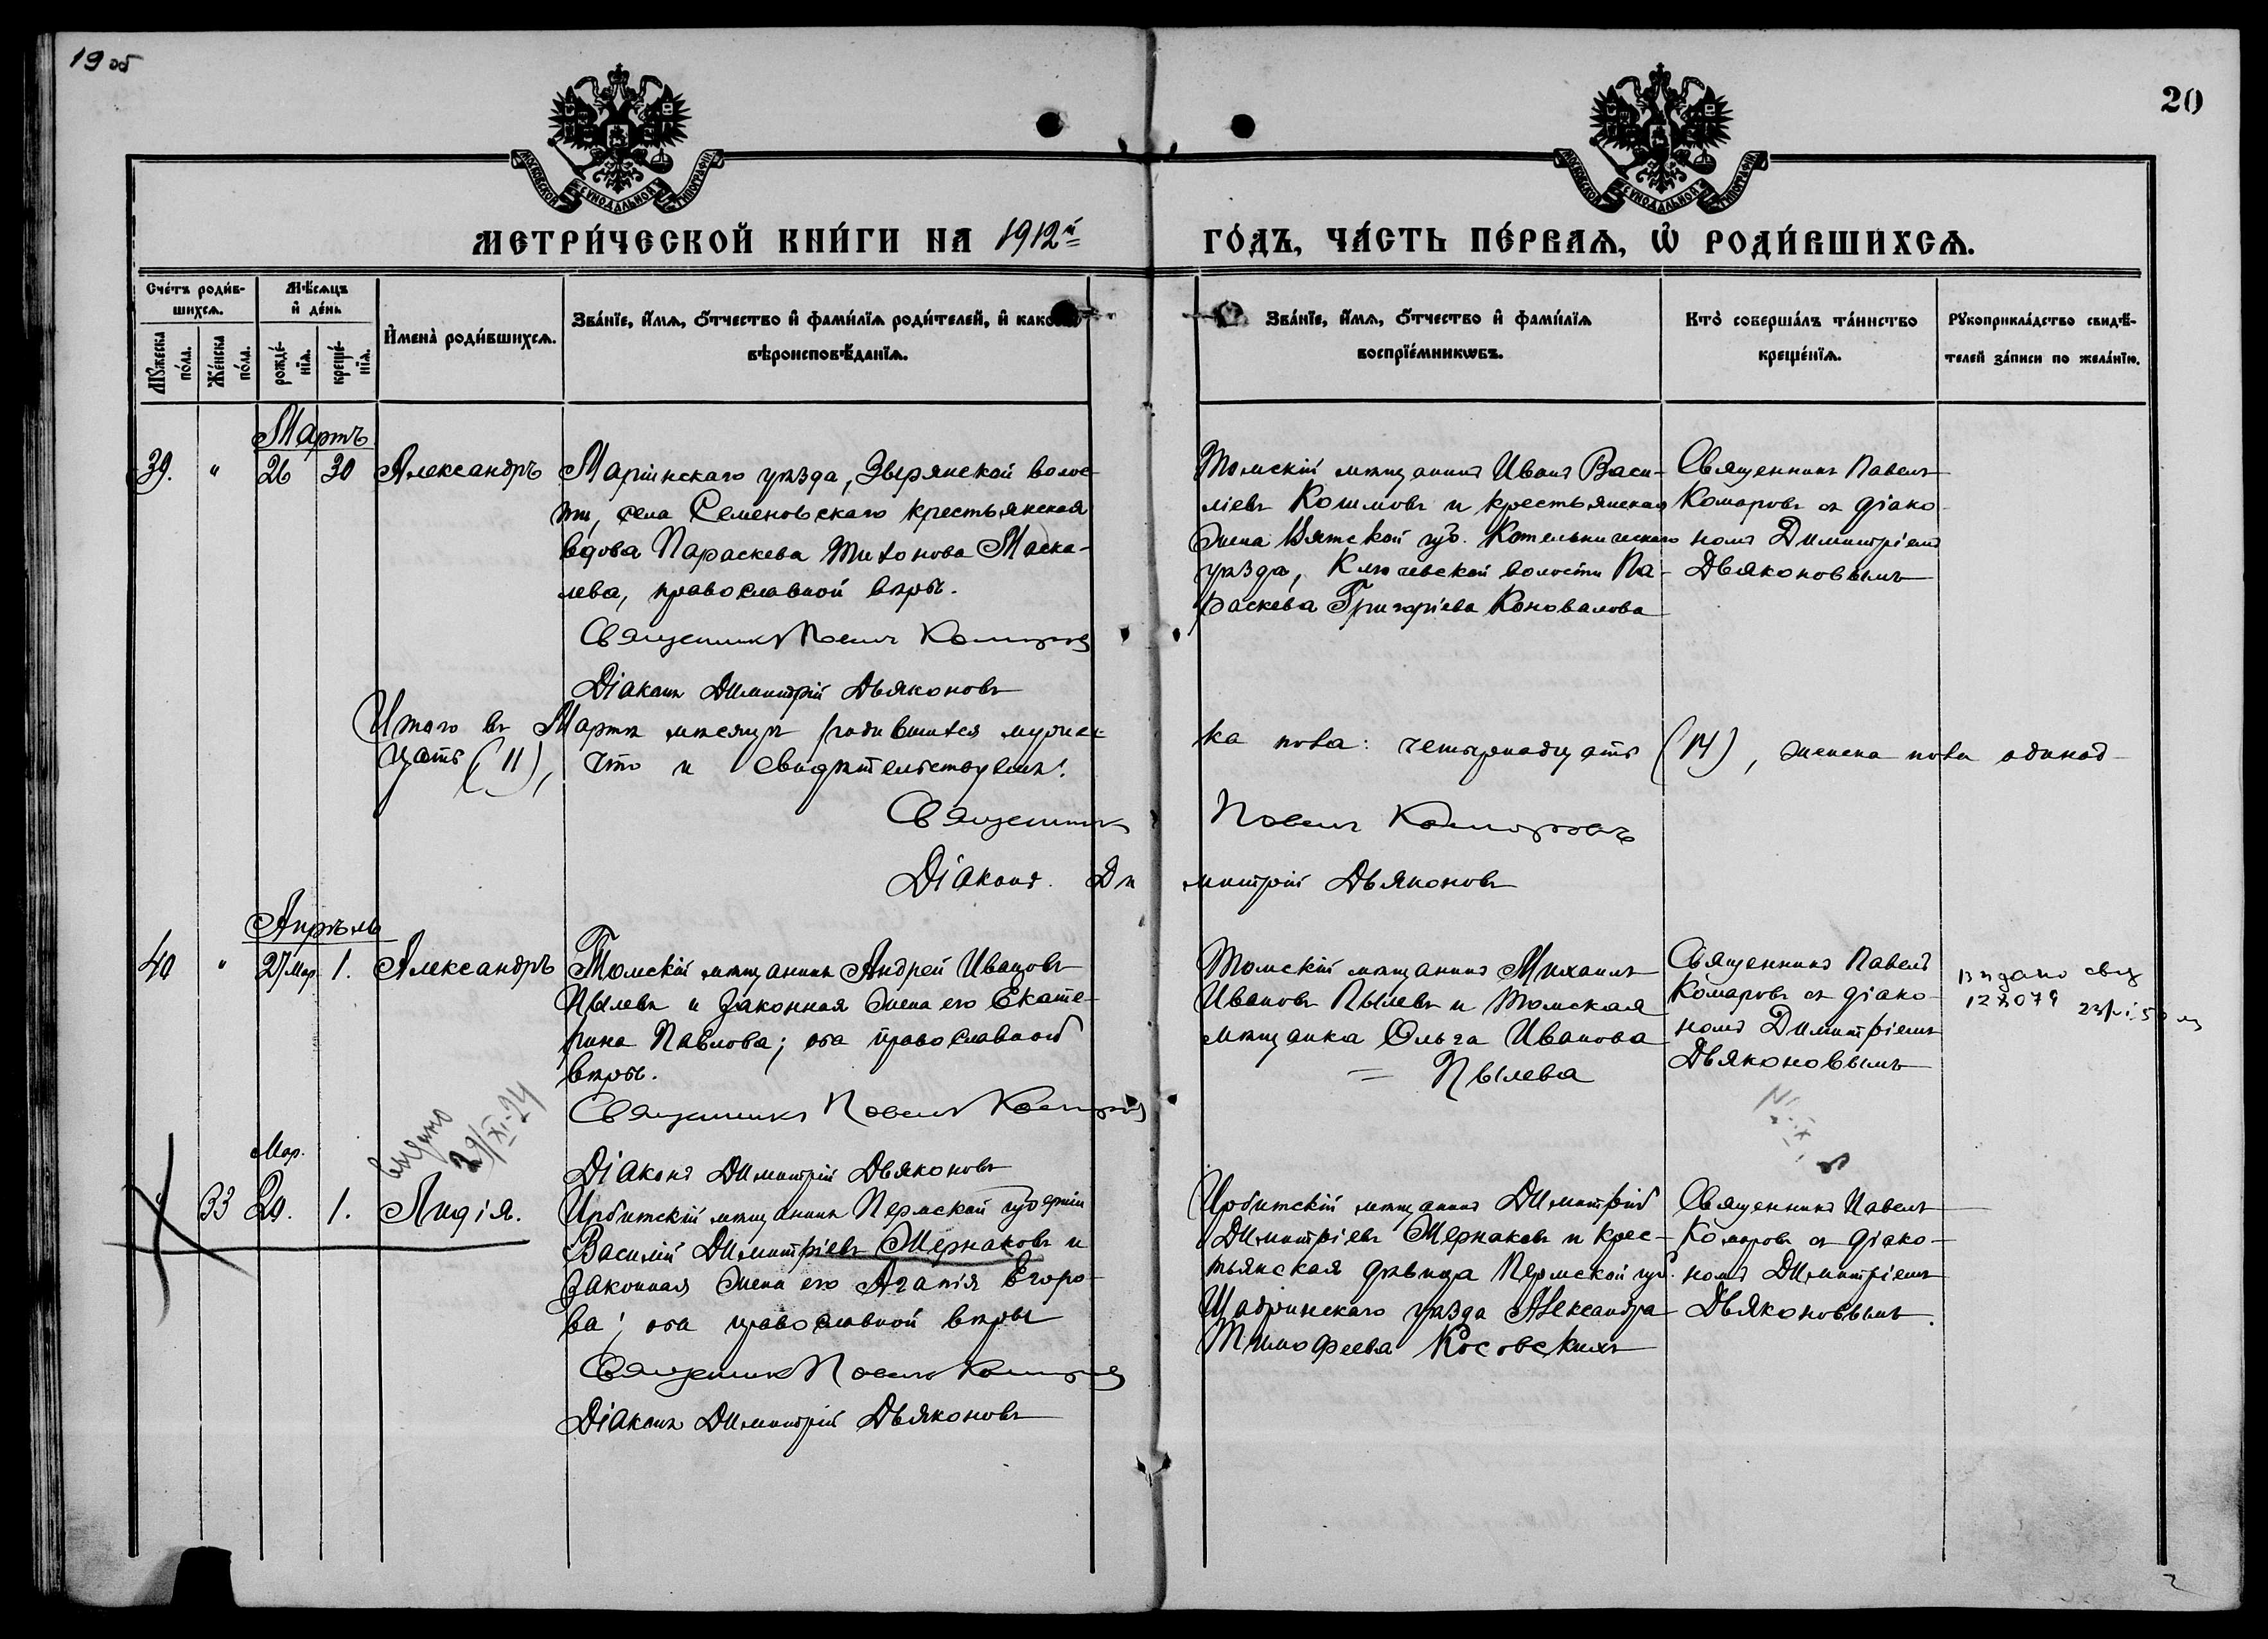 19 об
20
МОСКОВСКОЙ СѴНОДАЛЬНОЙ ТИПОГРАФІИ
МОСКОВСКОЙ СѴНОДАЛЬНОЙ ТИПОГРАФІИ
МЕТРИ́ЧЕСКОЙ КНИ́ГИ НА 1912й
ГО́ДЪ, ЧА́СТЬ ПЕ́РВАѦ, Ѡ҆ РОДИ́ВШИХСѦ.
Сче́тъ роди́в-
шихсѧ.
Мѣ́сѧцъ
и҆ де́нь
Мꙋ́жеска
по́ла.
Же́нска
по́ла.
рожде́-
нїѧ.
креще́-
нїѧ.
И҆мена̀ роди́вшихсѧ.
Зва́нїе, и҆́мѧ, ѻ҆́тчество и҆ фами́лїѧ роди́телей, и҆
вѣроисповѣ́данїѧ.
Зва́нїе, и҆́мѧ, ѻ҆́тчество и҆ фами́лїѧ
воспрїе́мникѡвъ.
Кто̀ соверша́лъ та́инство
креще́нїѧ.
Рꙋкоприкла́дство свидѣ́-
телей за́писи по жела́нїю.
Мартъ
39. " 26 30 Александръ
Маріинскаго уѣзда, Зырянской волос-
ти, села Семеновскаго крестьянская
вдова Параскева Тихонова Маска-
лева, православной вѣры.
Священникъ Павелъ Комаровъ
Діаконъ Димитрій Дьяконовъ
Томскій мѣщанинъ Иванъ Васи-
ліевъ и крестьянская
жена Вятской губ. Котельническаго
уѣзда, Ключевской волости Па-
раскева Григоріева Коновалова
Священникъ Павелъ
Комаровъ съ діако-
номъ Димитріемъ
Дьяконовымъ
Итого въ Мартѣ мѣсяцѣ родившихся мужес-
ка пола: четырнадцать (14), женска пола одинад-
цать (11), что и свидѣтельствуемъ:
Священникъ Павелъ Комаровъ
Діаконъ Димитрій Дьяконовъ
Апрѣль
40 " 27 Мар. 1. Александръ
Томскій мѣщанинъ Андрей Ивановъ
Пылевъ и законная жена его Екате-
рина Павлова; оба православной
вѣры.
Священникъ Павелъ Комаровъ
Діаконъ Димитрій Дьяконовъ
Томскій мѣщанинъ Михаилъ
Ивановъ Пылевъ и Томская
мѣщанка Ольга Иванова
= Пылева
Священникъ Павелъ
Комаровъ съ діако-
номъ Димитріемъ
Дьяконовымъ
выдано
выдано
29/XI-24
Мар.
33 20. 1. Лидія.
Ирбитскій мѣщанинъ Пермской губерніи
Василій Димитріевъ Жернаковъ и
законная жена его Агапія Егоро-
ва; оба православной вѣры
Священникъ Павелъ Комаровъ
Діаконъ Димитрій Дьяконовъ
Ирбитскій мѣщанинъ Димитрій
Димитріевъ Жернаковъ и крес-
тьянская дѣвица Пермской губ.
Шадринскаго уѣзда Александра
Тимофеева Косовскихъ
Священникъ Павелъ
Комаровъ съ діако-
номъ Димитріемъ
Дьяконовымъ.